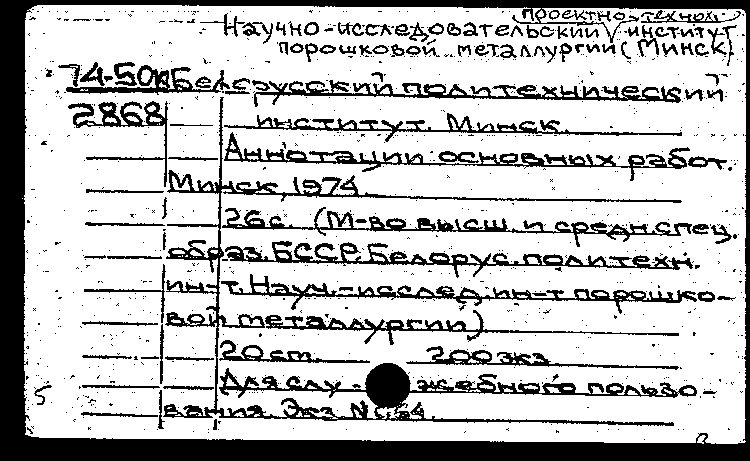 проектно-технол.
Научно-исследовательский институт
порошковой металлургии (Минск)
74-50к Белорусский политехнический
2868 институт. Минск.
Аннотации основных работ.
Минск, 1974.
26с. (М-во высш. и средн. спец.
образ. БССР. Белорус. политехн.
ин-т. Науч.-исслед. ин-т порошко-
вой металлургии)
20 см. 200 экз
Для слу - жебного пользо-
вания. Экз. №
5